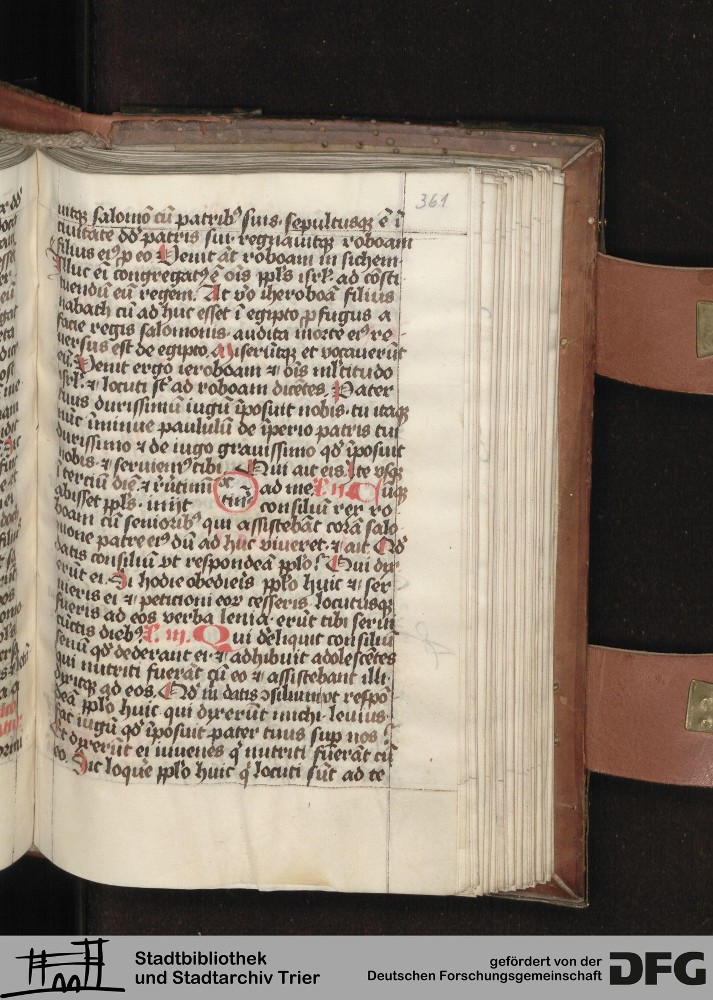 361
mitqȝ salomō cū patribꝰ suis · sepultusqȝ ē ī
ciuitate dd̄ patris sui · regnauitqȝ roboam
filius eiꝰ p eo · Venit āt roboam in sichem ·
Illuc eī congregatꝰ ē ois ppl̄s isrl̄ · ad cōsti
tuendū eū regem. At v̄o iheroboā filius
nabath cū ad huc esset ī egipto ꝓfugus a
facie regis salomonis · audita morte eiꝰ re
uersus est de egipto. Miserūtqȝ et vocauerūt
eū. Venit ergo ieroboam ⁊ ois ml̄titudo
isrl̄ · ⁊ locuti st̄ ad roboam dicētes. Pater
tuus durissimū iugū īposuit nobis · tu itaqȝ
nūc īminue paululū de īperio patris tui
durissimo ⁊ de iugo grauissimo qd̄ īposuit
nobis · ⁊ seruiemꝰ tibi · Qui ait eis · Ite vsqȝ
ī terciū diē · ⁊ ad me. l. ii. Cūqȝ
abisset ppl̄s · iniit consiliū rex ro
boam cū senioribꝰ qui assistebāt corā salo
mone patre eiꝰ dū ad huc viueret · ⁊ ait. Qd̄
datis consiliū vt respondeā ppl̄o? Qui dix
erūt ei. Si hodie obedieris ppl̄o huic ⁊ ser
uieris ei ⁊ peticioni eor̄ cesseris locutusqȝ
fueris ad eos verba lenia · erūt tibi serui
cūctis diebꝰ. l. iii. Qui deliquit consiliū
senū qd̄ dederant ei · ⁊ adhibuit adolescētes
qui nutriti fuerāt cū eo ⁊ assistebant illi ·
dixitqȝ ad eos. Qd̄ m̄ datis ꝯsiliū vt respō
deā ppl̄o huic qui dixerūt michi · leuius
fac iugū qd̄ īposuit pater tuus sup nos?
Et dixerūt ei iuuenes q̄ nutriti fuerāt cū
eo. Sic loque ppl̄o huic q̄ locuti sūt ad te
Stadtbibliothek
und Stadtarchiv Trier
gefördert von der
Deutschen Forschungsgemeinschaft
DFG